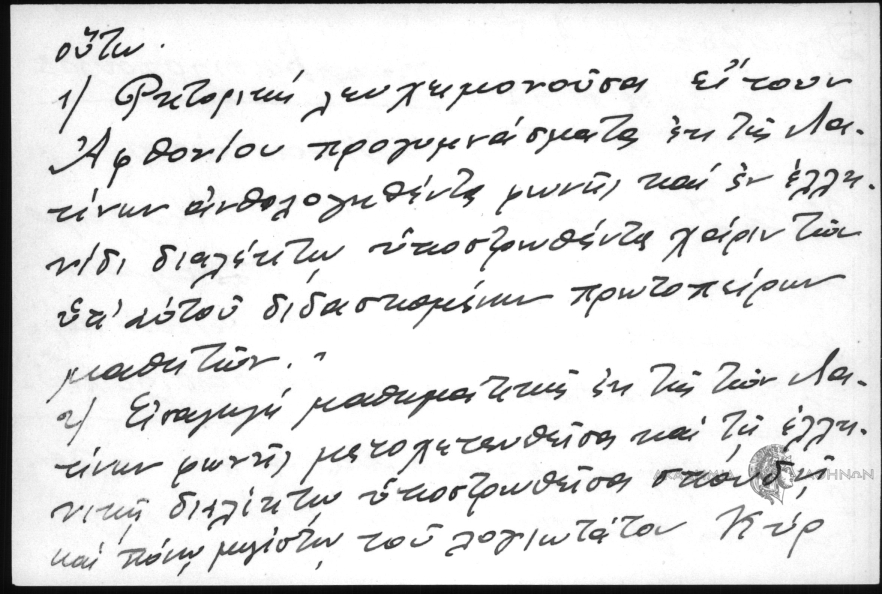 οὕτω.
1) Ρητορική λευχειμονοῦσα εἴτουν
Ἀφθονίου προγυμνάσματα ἐκ τῆς Λα-
τίνων ἀνθολογηθέντα φωνῆς καί ἐν ἑλλη-
νίδι διαλέκτῳ ὑποστρωθέντα χάριν τῶν
ὑπ' αὐτοῦ διδασκομένων πρωτοπείρων
μαθητῶν."
2) Εἰσαγωγή μαθηματικῆς ἐκ τῆς τῶν Λα-
τίνων φωνῆς μετοχετευθεῖσα καί τῇ ἑλλη-
νικῇ διαλέκτῳ ὑποστρωθεῖσα σπουδῇ
καί πόνῳ μεγίστῳ τοῦ λογιωτάτου Κύρ
ΑΚΑΔΗΜΙΑ ΑΘΗΝΩΝ